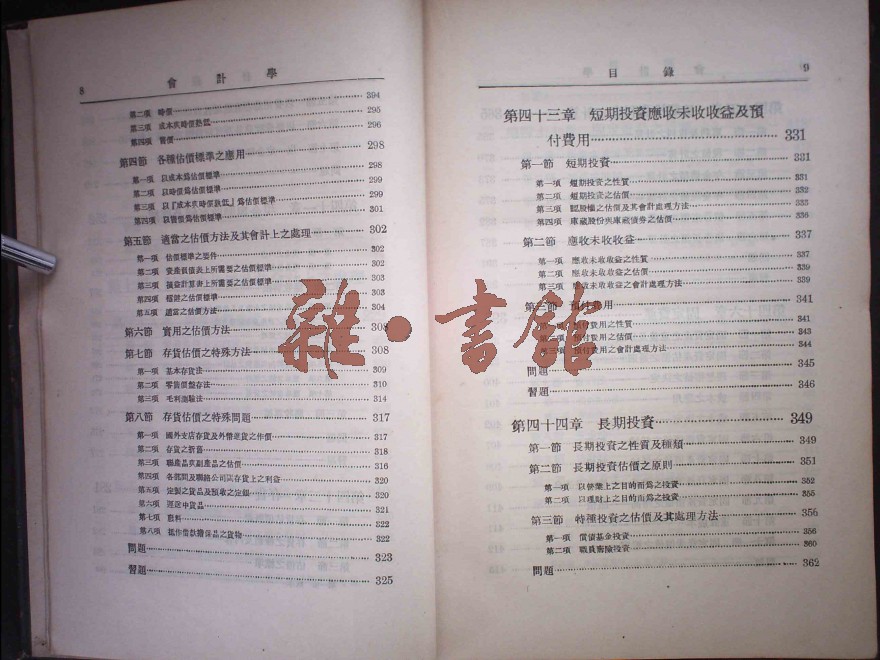 8 會計學
第二項 時價 394
第三項 成本與時價孰低 295
第四項 售價 296
第四節 各種估價標準之應用 298
第一項 以成本爲估價標準 298
第二項 以時價爲估價標準 299
第三項 以『成本與時價孰低』爲估價標準 299
第四項 以售價爲估價標準 301
第五節 適當之估價方法及其會計上之處理 302
第一項 估價標準之要件 302
第二項 資產負債表上所需要之估價標準 302
第三項 損益計算書上所需要之估價標準 303
第四項 穩健之估價標準 303
第五項 適當之估價方法 304
第六節 實用之估價方法 308
第七節 存貨估價之特殊方法 308
第一項 基本存貨法 309
第二項 零售價盤存法 310
第三項 毛利測驗法 314
第八節 存貨估價之特殊問題 317
第一項 國外支店存貨及外幣進貨之作價 317
第二項 存貨之折舊 318
第三項 聯產品與副產品之估價 316
第四項 各部間及聯絡公司間存貨上之利益 320
第五項 定製之貨品及預收之定銀 320
第六項 運送中貨品 321
第七項 廢料 322
第八項 抵作借款擔保品之貨物 322
問題 323
習題 325
目錄 9
第四十三章 短期投資應收未收收益及預
付費用 331
第一節 短期投資 331
第一項 短期投資之性質 331
第二項 短期投資之估價 332
第三項 認股權之估價及其會計處理方法 335
第四項 庫藏股份與庫藏債券之估價 336
第二節 應收未收收益 337
第一項 應收未收收益之性質 337
第二項 應收未收收益之估價 339
第三項 應收未收收益之會計處理方法 339
第三節 預付費用 341
第一項 預付費用之性質 341
第二項 預付費用之估價 343
第三項 預付費用之會計處理方法 344
問題 345
習題 346
第四十四章 長期投資 349
第一節 長期投資之性質及種類 349
第二節 長期投資估價之原則 351
第一項 以營業上之目的而爲之投資 352
第二項 以理財上之目的而爲之投資 355
第三節 特種投資之估價及其處理方法 356
第一項 償債基金投資 356
第二項 職員壽險投資 360
問題 362
雜·書館